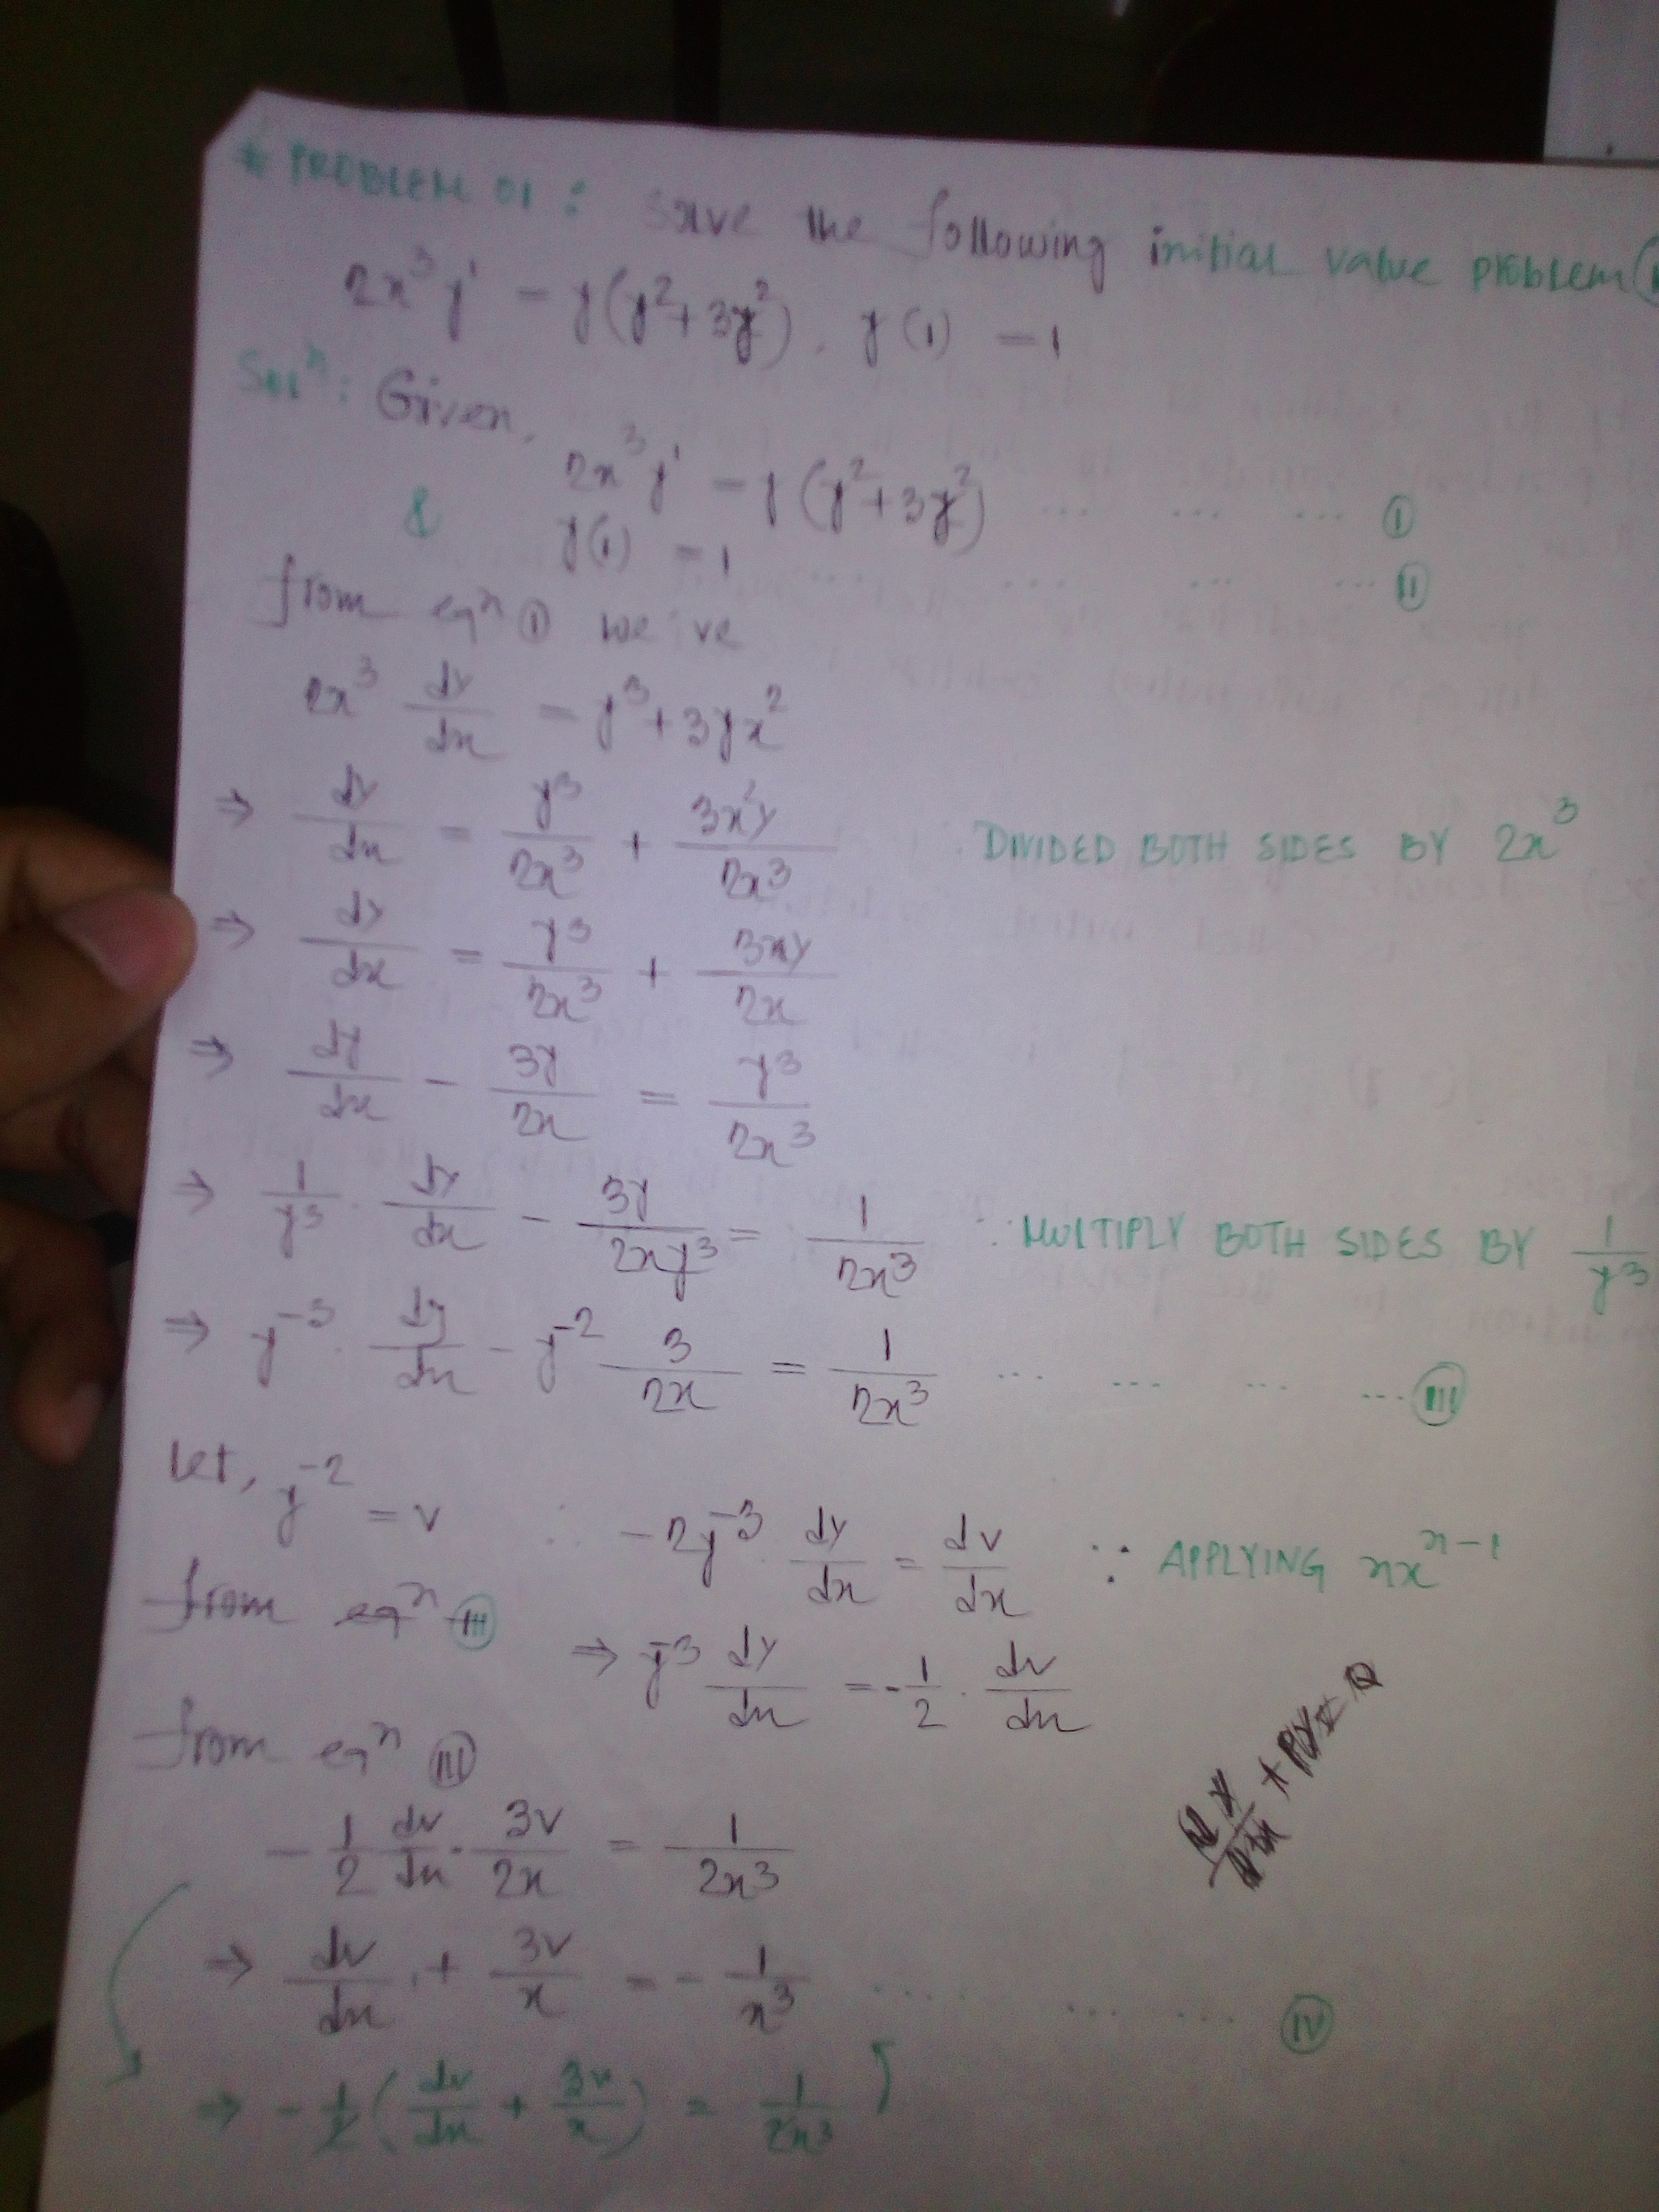 * PROBLEM 01: Solve the following initial value problem
2x³y' = y(y²+3y²), y(1) = 1
Solⁿ: Given,
2x³y' = y(y²+3y²) ... ... ... (I)
& y(1) = 1 ... ... ... ... (II)
from eqⁿ (I) we've
2x³ dy/dx = y³+3yx²
⇒ dy/dx = y³/2x³ + 3x²y/2x³ DIVIDED BOTH SIDES BY 2x³
⇒ dy/dx = y³/2x³ + 3xy/2x
⇒ dy/dx - 3y/2x = y³/2x³
⇒ 1/y³ · dy/dx - 3y/2xy³ = 1/2x³ ∴ MULTIPLY BOTH SIDES BY 1/y³
⇒ y⁻³ · dy/dx - y⁻² 3/2x = 1/2x³ ... ... ... ... (III)
Let, y⁻² = v ∴ -2y⁻³ · dy/dx = dv/dx ∵ APPLYING nxⁿ⁻¹
from eqⁿ (III) ⇒ y⁻³ dy/dx = -1/2 · dv/dx
from eqⁿ (III)
-1/2 dv/dx - 3v/2x = 1/2x³
⇒ dv/dx + 3v/x = -1/x³ ... ... ... (IV)
⇒ -1/2 (dv/dx + 3v/x) = 1/2x³